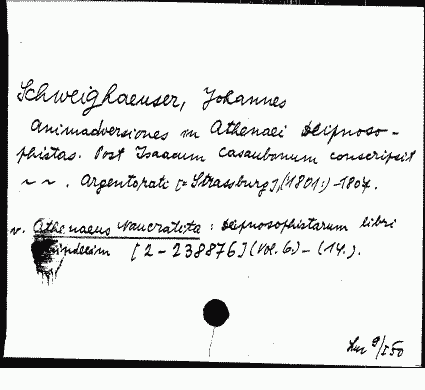 Schweighaeuser, Johannes
Animadversiones in Athenaei Deipnoso-
phistas. Post Isaacum Casaubonum conscripsit
~ ~ . Argentorati [= Strassburg], (1801.)-1807.
v. Athenaeus Naucratita : Deipnosophistarum libri
quindecim [2-238876] (Vol. 6.) - (14.).